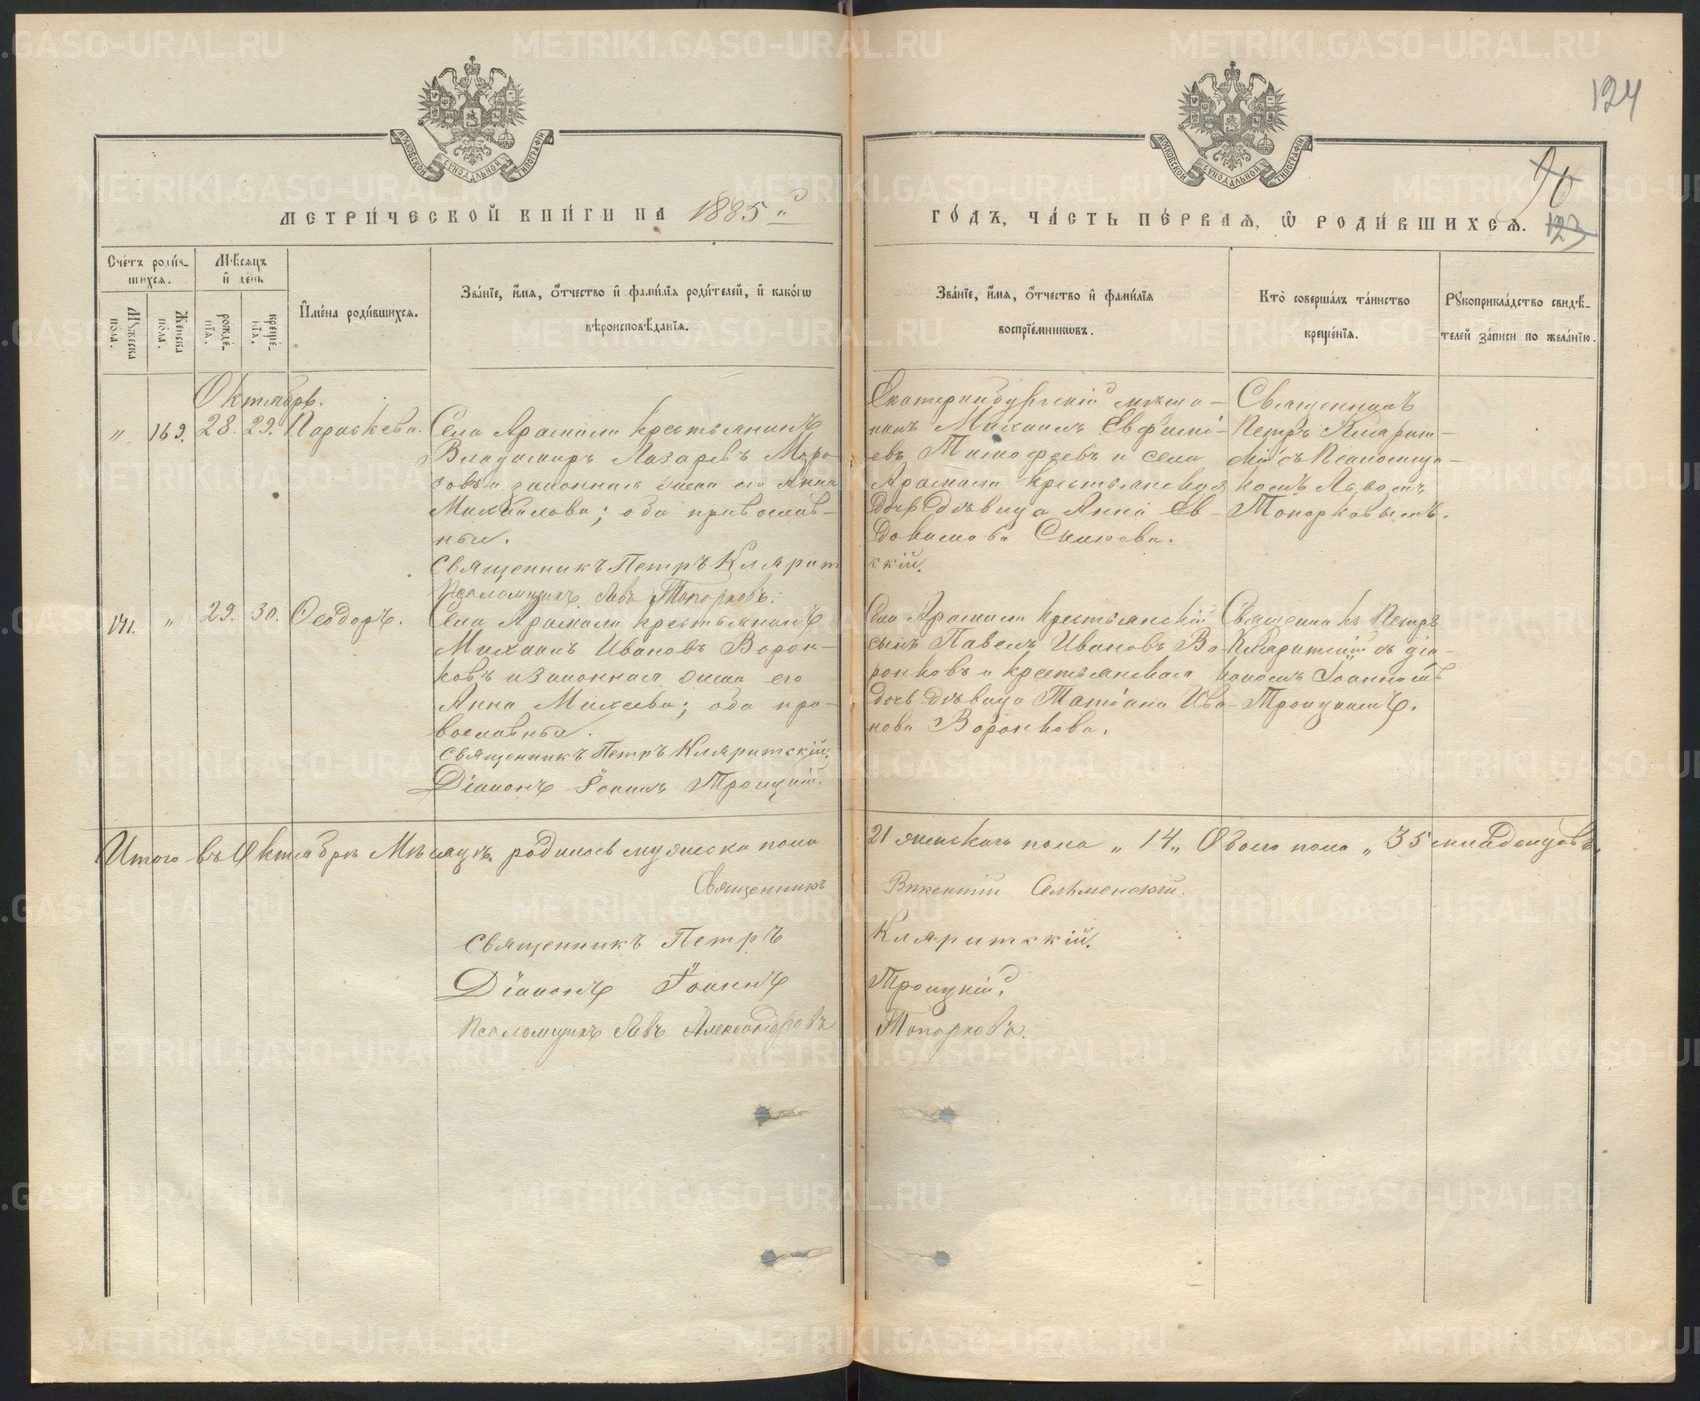 124
90
123
МЕТРИ́ЧЕСКОЙ КНИ́ГИ НА 1885й
ГО́ДЪ, ЧА́СТЬ ПЕ́РВАЯ, Ѡ РОДИ́ВШИХСЯ.
Сче́тъ роди́в-
шихся.
Мꙋжеска по́ла.
Женска по́ла.
Мѣсяцъ и҆ де́нь
рожде́-
нїя.
креще́-
нїя.
И҆мена̀ роди́вшихся.
Зва́нїе, и҆́мя, ѻ҆́тчество и҆ фами́лїя роди́телей, и҆ како́гѡ
вѣроисповѣ́данїя.
Зва́нїе, и҆́мя, ѻ҆́тчество и҆ фами́лїя
воспрїе́мникѡвъ.
Кто̀ соверша́лъ та́инство
креще́нїя.
Рꙋкоприкла́дство свидѣ́-
телей за́писи по жела́нїю.
Октябрь.
" 169. 28. 29. Параскева.
Села Арамили крестьянинъ
Владимиръ Лазаревъ Моро-
зовъ и законная жена его Анна
Михайлова; оба православ-
ные.
Священникъ Петръ Кляритскій.
Псаломщикъ Левъ Топорковъ.
Екатеринбургскій мѣща-
нинъ Михаилъ Евфимі-
евъ Тимофеевъ и села
Арамили крестьянская
дочь дѣвица Анна Ев-
докимова
Священникъ
Петръ Кларит-
скій съ Псаломщи-
комъ Львомъ
Топорковымъ.
171. " 29. 30. Ѳеодоръ.
Села Арамили крестьянинъ
Михаилъ Ивановъ Ворон-
ковъ и законная жена его
Анна Михеева; оба пра-
вославные.
Священникъ Петръ Кляритскій.
Діаконъ Іоаннъ Троицкій.
Села Арамили крестьянскій
сынъ Павелъ Ивановъ Во-
ронковъ и крестьянская
дочь дѣвица Татіана Ива-
нова Воронкова.
Священникъ Петръ
Кларитскій съ діа-
кономъ Іоанномъ
Троицкимъ.
Итого въ Октябрѣ Мѣсяцѣ родилось мужеска пола 21 женскаго пола „ 14 „ Обоего пола „ 35 младенцовъ.
Священникъ Викентій Сельменскій.
Священникъ Петръ Кляритскій.
Діаконъ Іоаннъ Троицкій.
Псаломщикъ Левъ Александровъ Топорковъ.